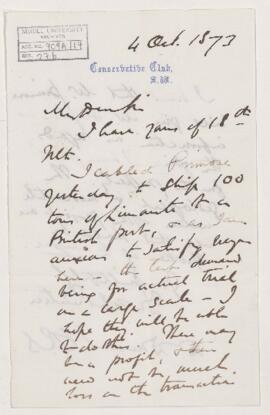 McGILL UNIVERSITY
ARCHIVES
ACC. NO. 909A/14
REF. 27b
4 Oct. 1873
Conservative Club,
S.W.
My Dear Sir
I have yours of 18th
Ult. I cabled Primrose
yesterday to ship 100
tons of Limonite to a
British port, & as I am
anxious to satisfy
here the demand
being for actual trial
on a large scale – I
hope they will be able
to do this. There may
be a profit, & there
need not be much
loss on the transaction.